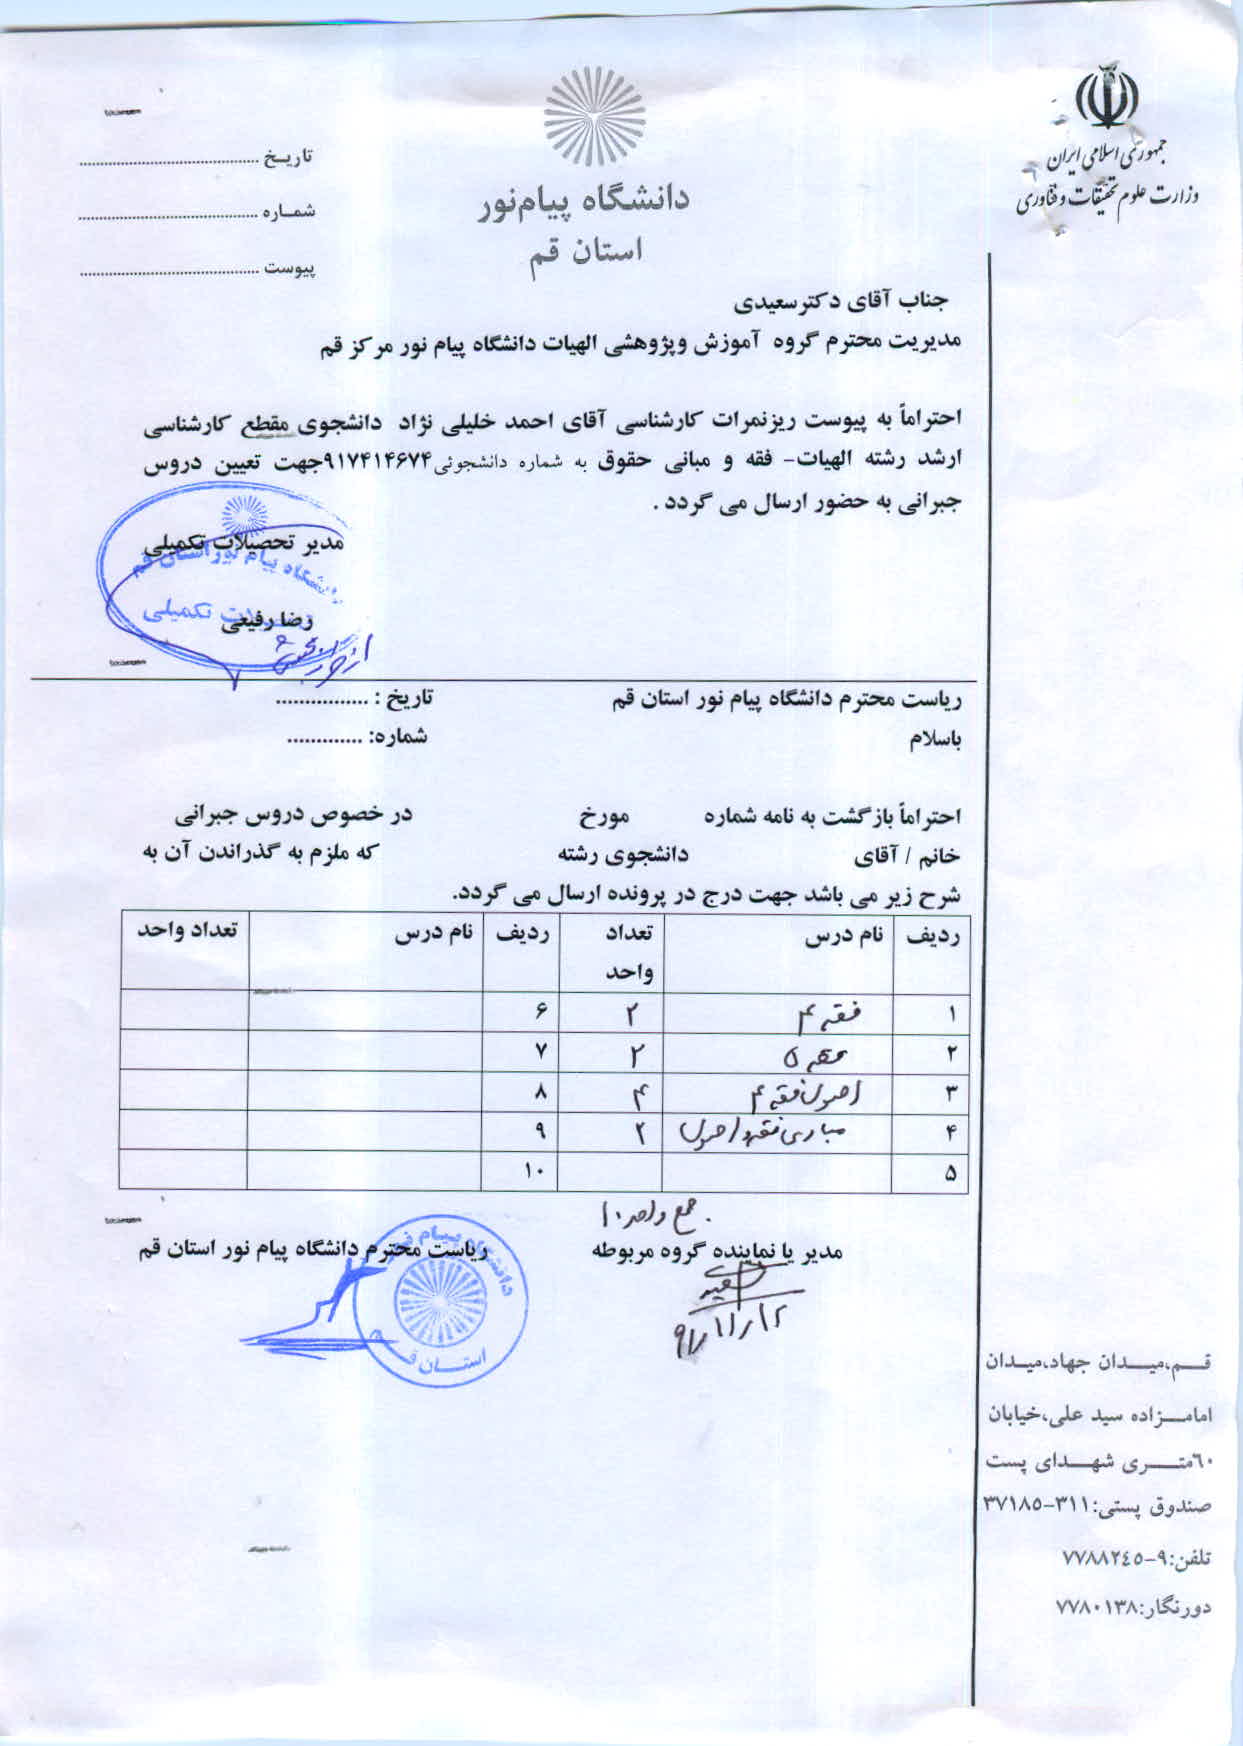 جمهوری اسلامی ایران
وزارت علوم تحقیقات و فناوری
دانشگاه پیام‌نور
استان قم
تاریـخ ........................................
شمـاره ........................................
پیوست ........................................
جناب آقای دکترسعیدی
مدیریت محترم گروه آموزش وپژوهشی الهیات دانشگاه پیام نور مرکز قم
احتراماً به پیوست ریزنمرات کارشناسی آقای احمد خلیلی نژاد دانشجوی مقطع کارشناسی
ارشد رشته الهیات- فقه و مبانی حقوق به شماره دانشجوئی۹۱۷۴۱۴۶۷۴جهت تعیین دروس
جبرانی به حضور ارسال می گردد .
مدیر تحصیلات تکمیلی
دانشگاه پیام نور استان قم
تحصیلات تکمیلی
رضا رفیعی
ریاست محترم دانشگاه پیام نور استان قم تاریخ : ................
باسلام شماره: .............
احتراماً بازگشت به نامه شماره مورخ در خصوص دروس جبرانی
خانم / آقای دانشجوی رشته که ملزم به گذراندن آن به
شرح زیر می باشد جهت درج در پرونده ارسال می گردد.
ردیف نام درس تعداد واحد ردیف نام درس تعداد واحد
۱ فقه ۴ ۲ ۶
۲ فقه ۵ ۲ ۷
۳ اصول فقه ۴ ۴ ۸
۴ مبادی فقه و اصول ۲ ۹
۵ ۱۰
جمع واحد ۱۰
مدیر یا نماینده گروه مربوطه ریاست محترم دانشگاه پیام نور استان قم
دانشگاه پیـام نور
استـان قـم
۹۲/۱۱/۱۲
قــم،میــدان جهاد،میدان
امامــزاده سید علی،خیابان
٦٠متـــری شهــدای پست
صندوق پستی:۳۱۱-۳۷۱۸۵
تلفن:۹-۷۷۸۸۲٤۵
دورنگار:۷۷۸۰۱۳۸